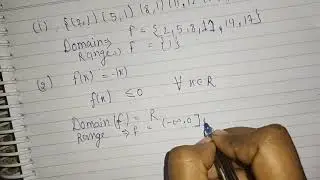 (1), {(2,1) (5,1) (8,1) (11,1)
Domain, f = {2, 5, 8, 11, 14, 17}
Range, f = {1}
(2) f(x) = -|x|
f(x) ≤ 0 ∀ x ∈ R
Domain (f) = R
Range ⇒ f = (-∞, 0]